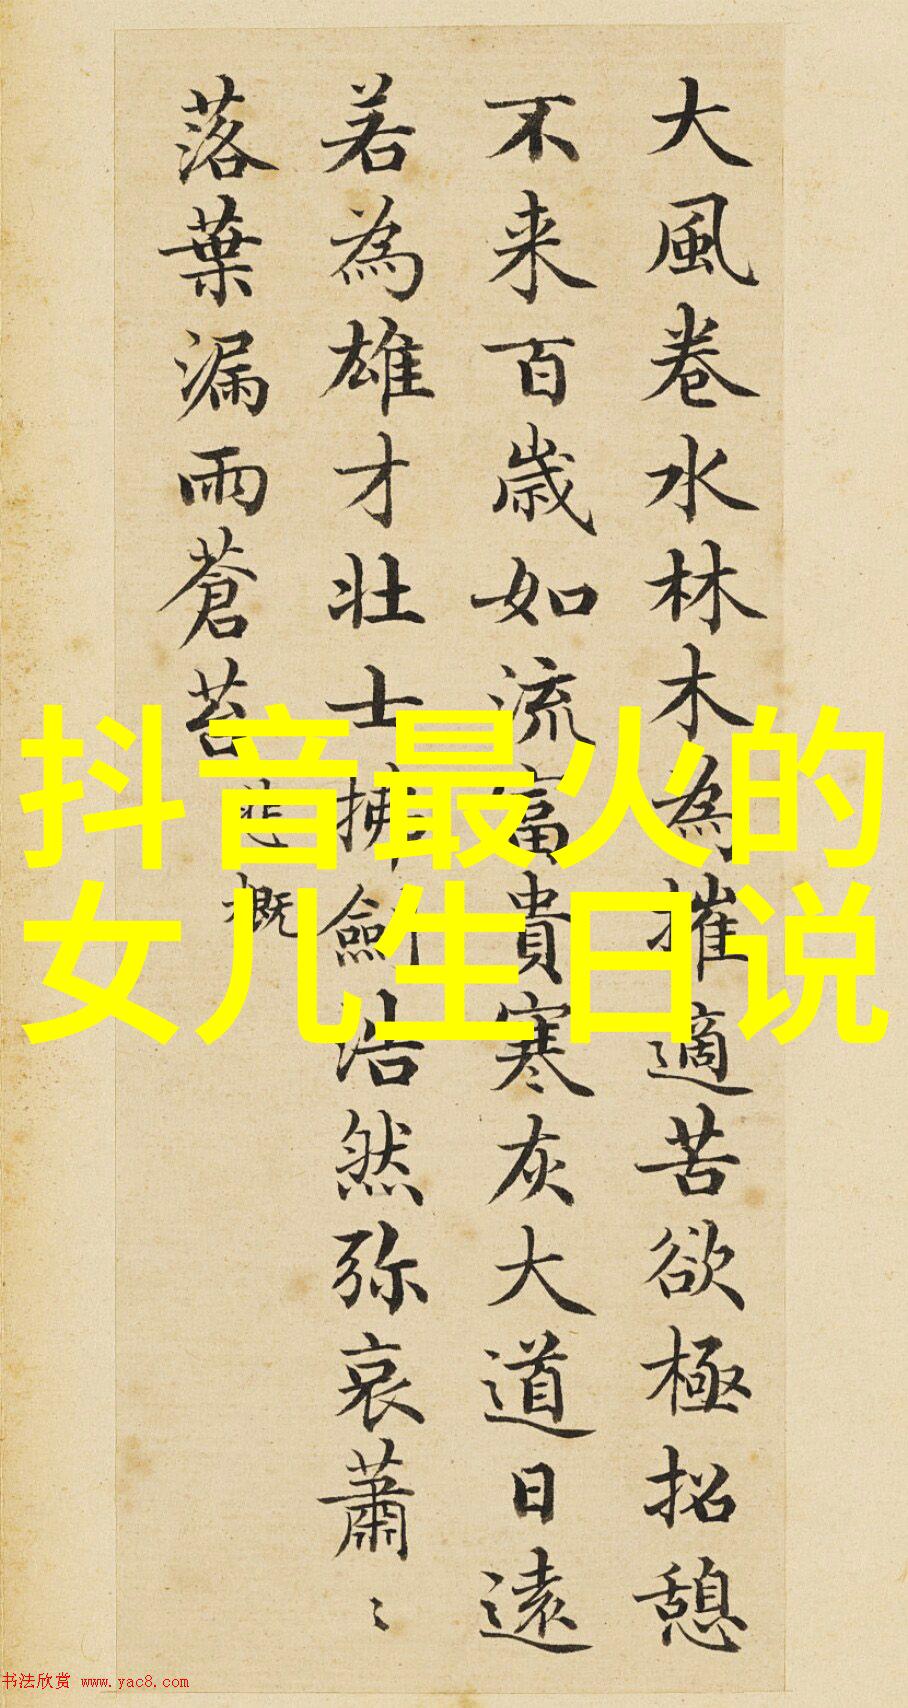 大風卷水林木為摧適苦欲極招憩
不来百歳如流富貴寒灰大道日遠
若為雄才壮士拂劒浩然弥哀蕭〻
落葉漏雨蒼苔
悲概
抖音最火的
女儿生日说
书法欣赏 www.yac8.com